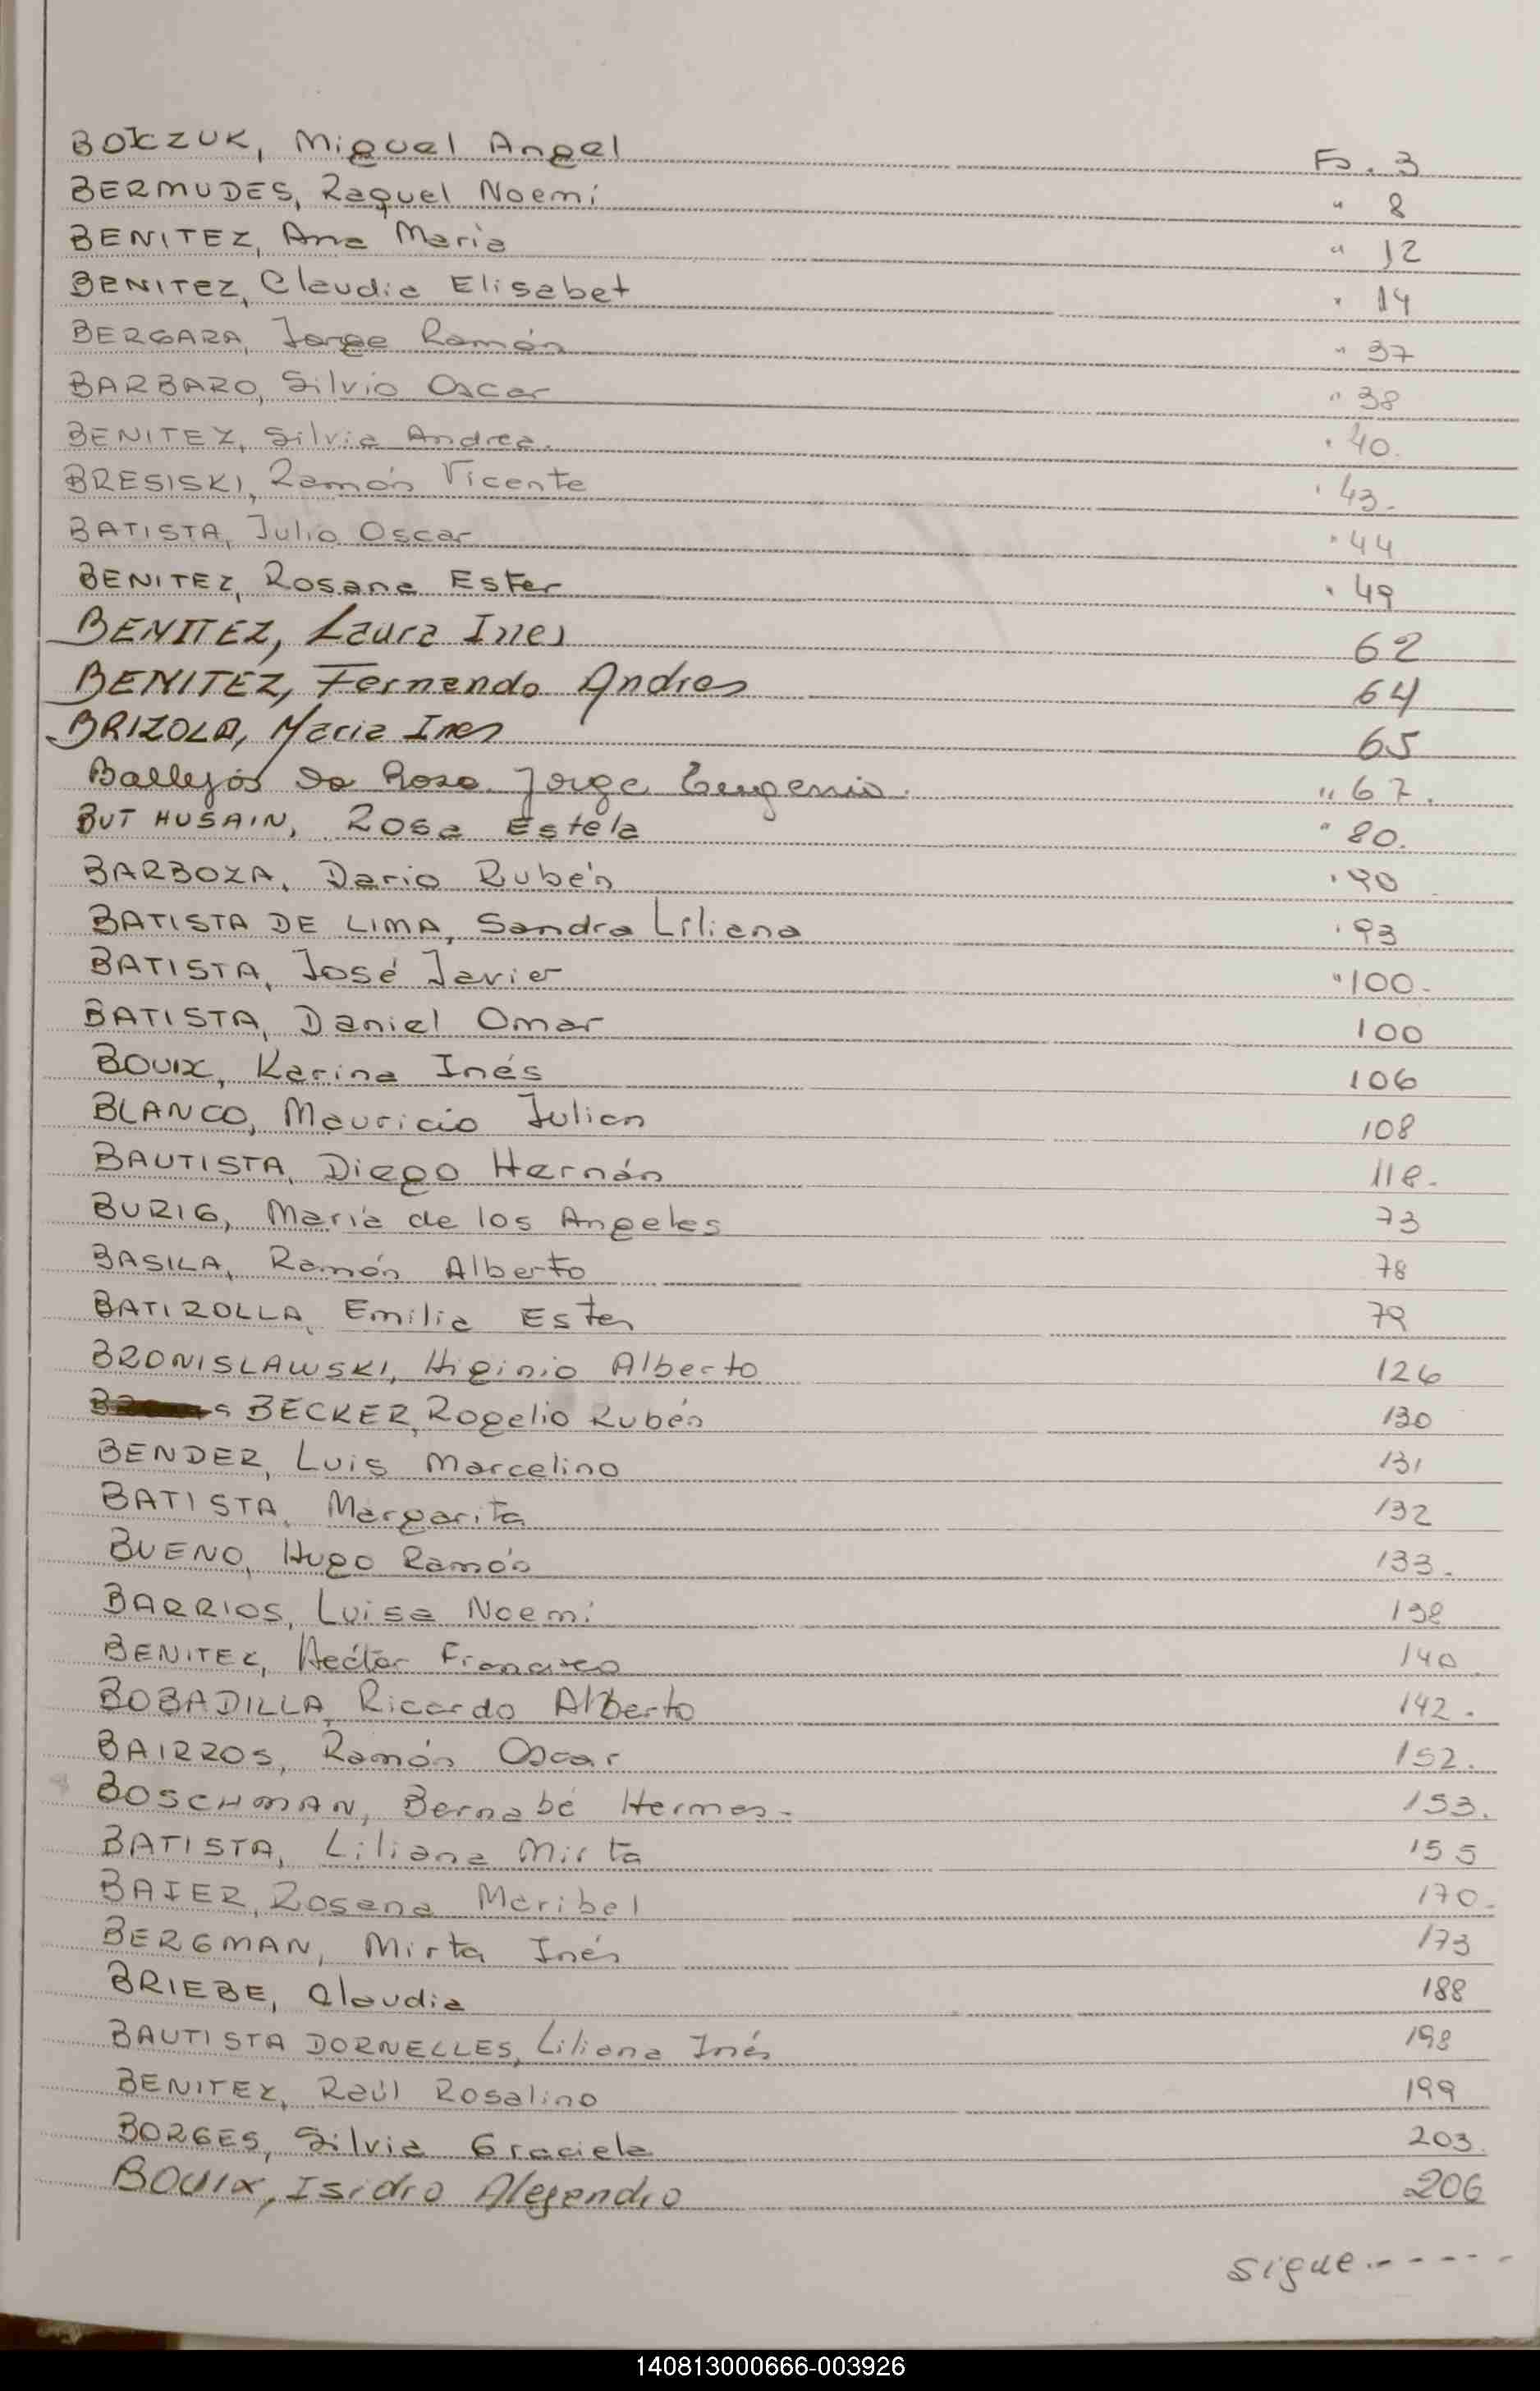 BOICZUK, Miguel Angel Fo. 3
BERMUDES, Raquel Noemí " 8
BENITEZ, Ana Maria " 12
BENITEZ, Claudia Elisabet " 14
BERGARA, Jorge Ramón " 37
BARBARO, Silvio Oscar " 38
BENITEZ, Silvia Andrea. " 40.
BRESISKI, Ramón Vicente " 43.
BATISTA, Julio Oscar " 44
BENITEZ, Rosana Ester " 49
BENITEZ, Laura Ines 62
BENITEZ, Fernando Andres 64
BRIZOLA, Maria Ines 65
Ballejos Da Rosa Jorge Eugenio. " 67.
BUT HUSAIN, Rosa Estela " 80.
BARBOZA, Dario Rubén " 90
BATISTA DE LIMA, Sandra Liliana " 93
BATISTA, José Javier " 100.
BATISTA, Daniel Omar 100
BOUIX, Karina Inés 106
BLANCO, Mauricio Julian 108
BAUTISTA, Diego Hernán 118.
BURIG, María de los Angeles 73
BASILA, Ramón Alberto 78
BATIROLLA, Emilia Ester 79
BRONISLAWSKI, Higinio Alberto 126
BECKER, Rogelio Rubén 130
BENDER, Luis Marcelino 131
BATISTA, Margarita 132
BUENO, Hugo Ramón 133.
BARRIOS, Luisa Noemí 138
BENITEZ, Hector Francisco 140
BOBADILLA, Ricardo Alberto 142.
BAIRROS, Ramón Oscar 152.
BOSCHMAN, Bernabé Hermes- 153.
BATISTA, Liliana Mirta 155
BAIER, Rosana Maribel 170.
BERGMAN, Mirta Inés 173
BRIEBE, Claudia 188
BAUTISTA DORNELLES, Liliana Inés 198
BENITEZ, Raúl Rosalino 199
BORGES, Silvia Graciela 203.
BOUIX, Isidro Alejandro 206
sigue.-----
140813000666-003926